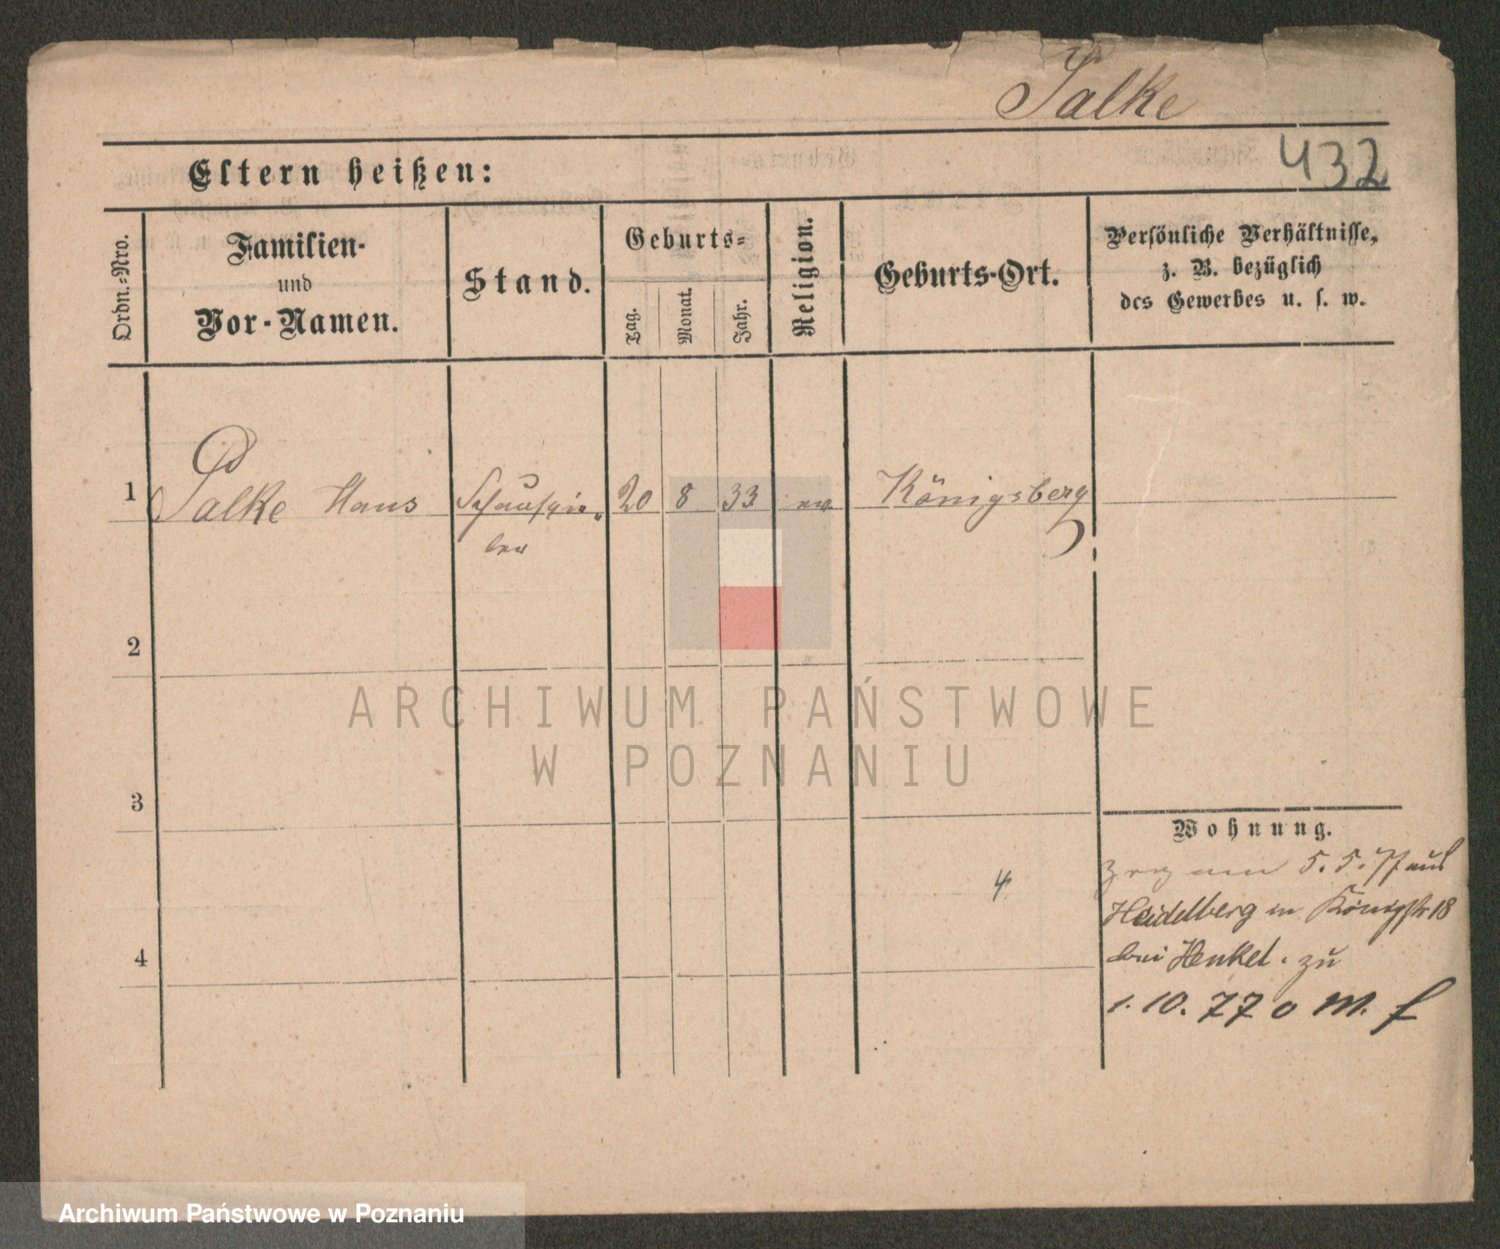 Palke
432
Eltern heißen:
Ordn.-Nro.
Familien-
und
Vor-Namen.
Stand.
Geburts-
Tag.
Monat.
Jahr.
Religion.
Geburts-Ort.
Persönliche Verhältnisse,
z. B. bezüglich
des Gewerbes u. s. w.
1 Palke Hans Schauspie- 20 8 33 ev Königsberg
ler
2
3
4
ARCHIWUM PAŃSTWOWE
W POZNANIU
Wohnung.
am 5. 5. 77 aus
Heidelberg in Königstr 18
bei Henkel. zu
1. 10. 77 o M. f
Archiwum Państwowe w Poznaniu